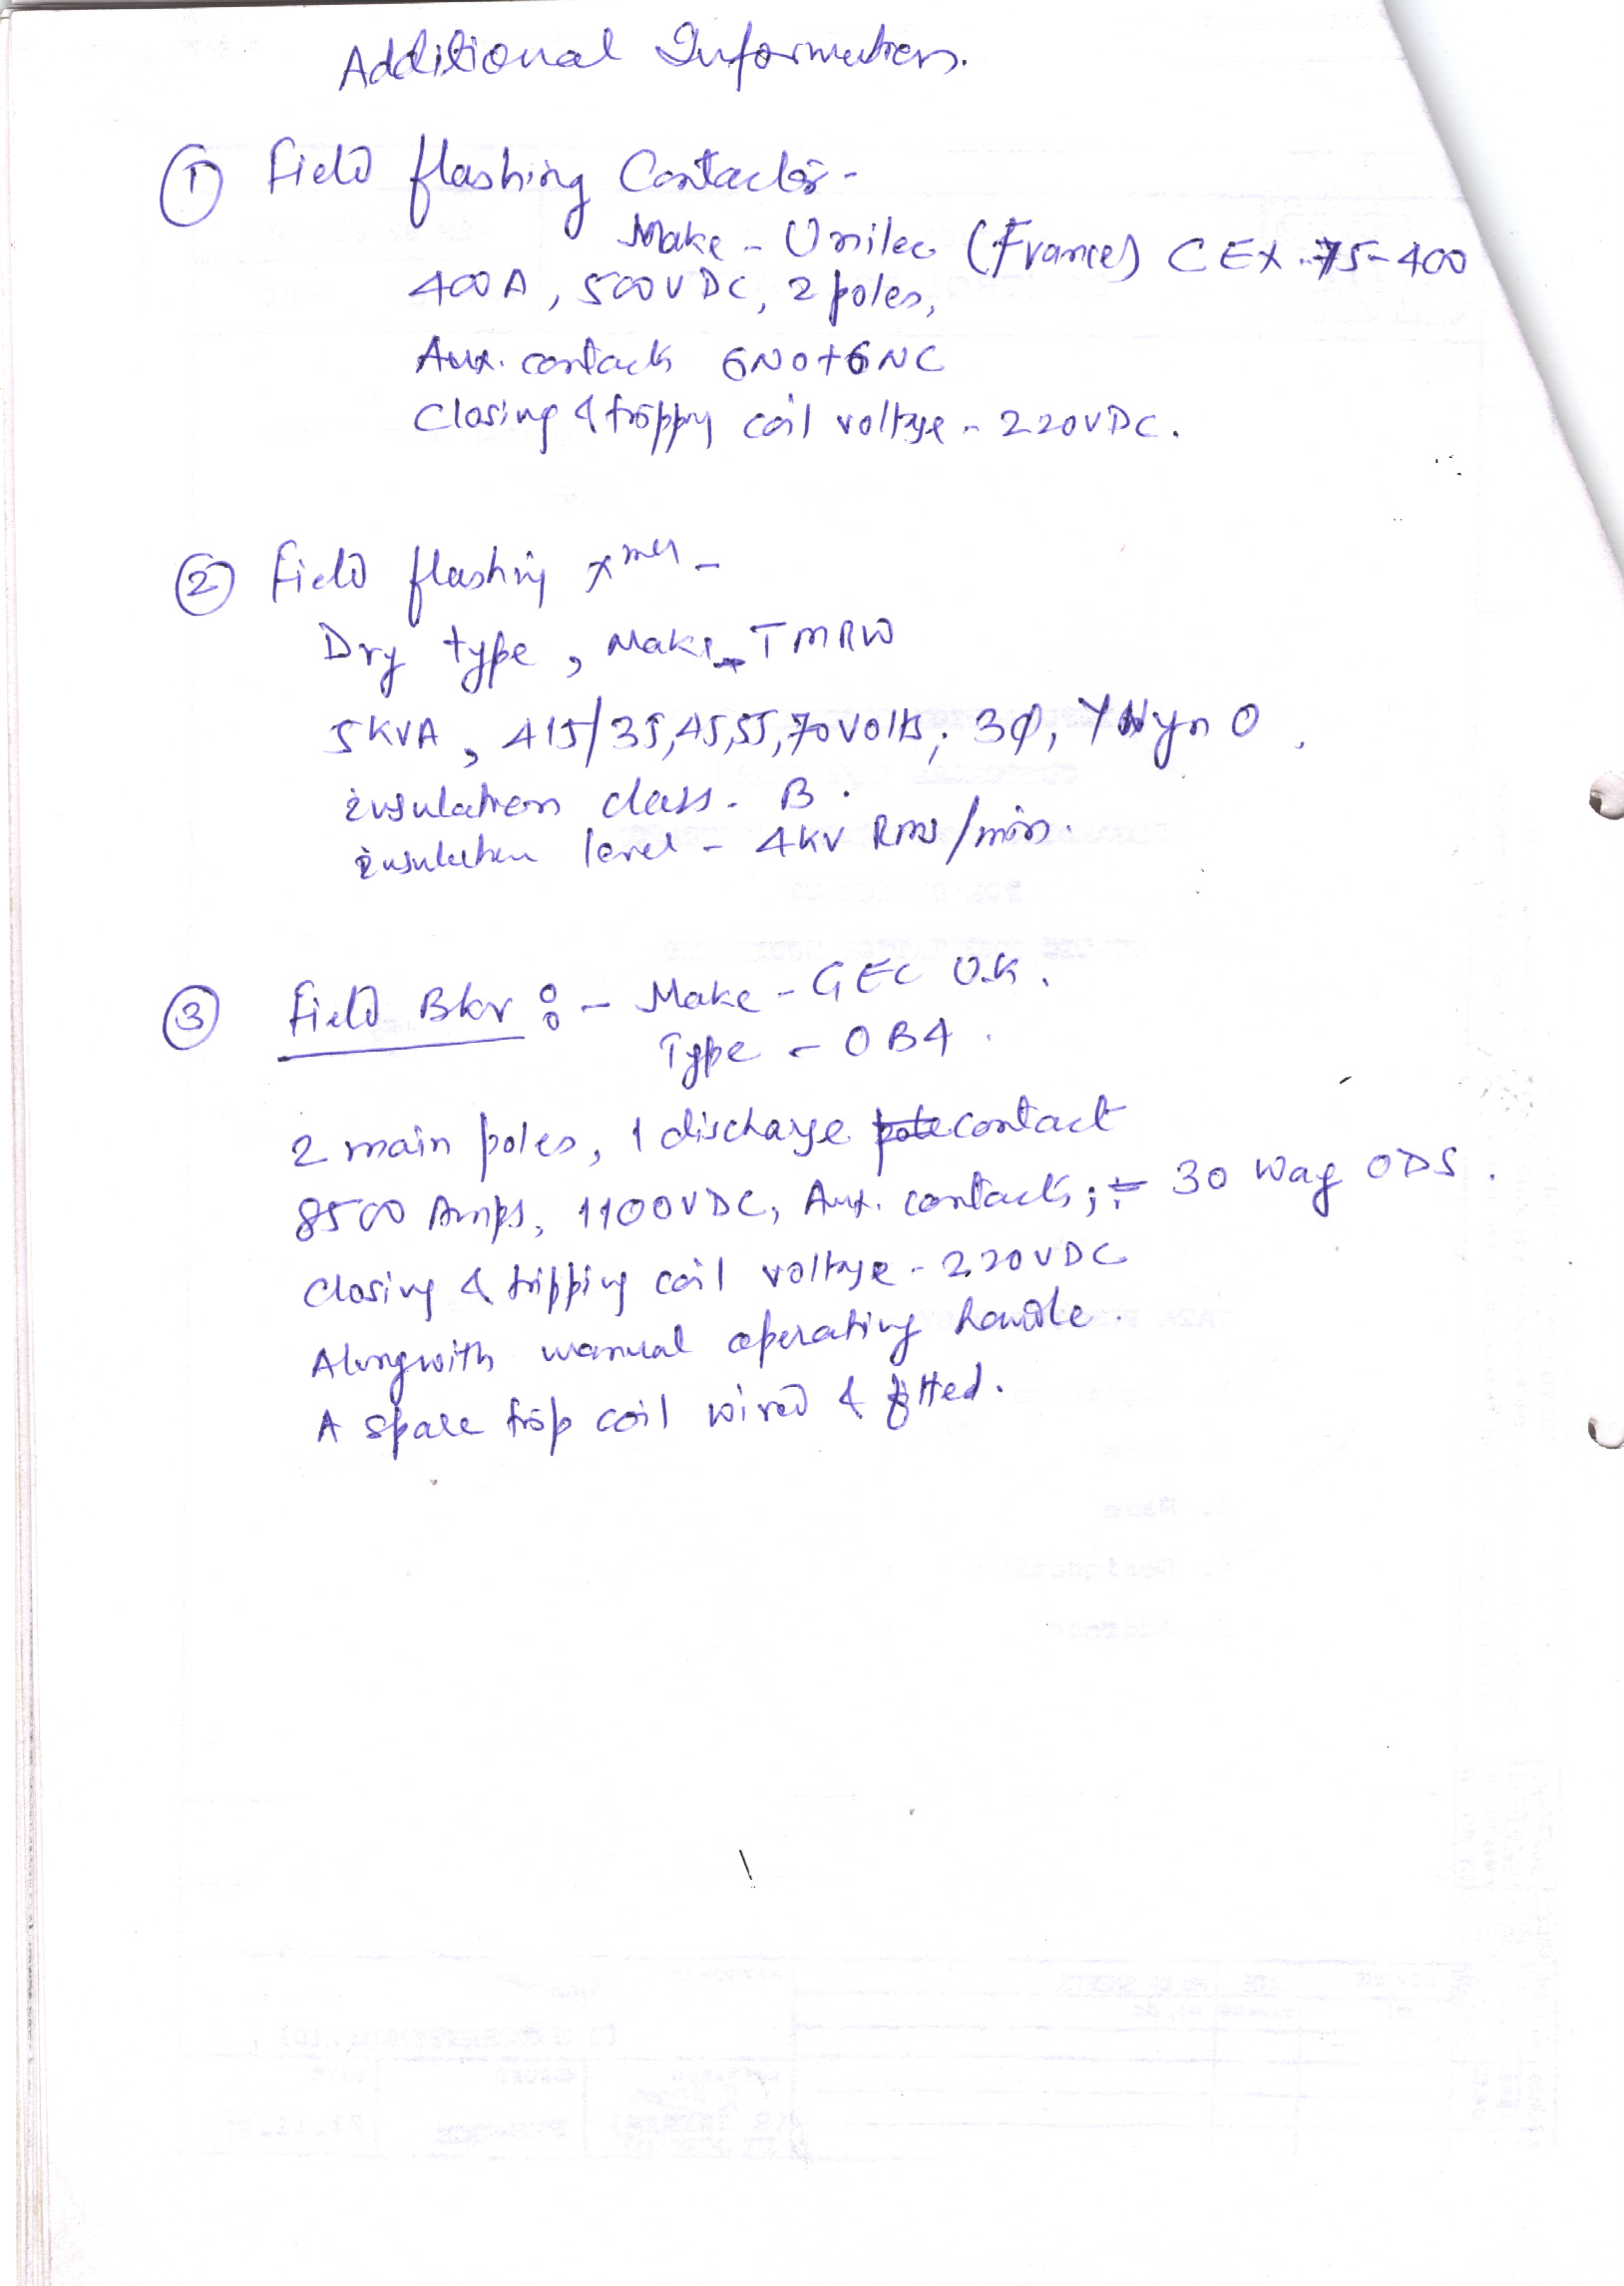 Additional Information.
① Field flashing Contactor -
Make - Unilec (France) CEX 75-400
400A, 500VDC, 2 poles,
Aux. contacts 6NO+6NC
Closing & tripping coil voltage - 220VDC.
② Field flashing xmer -
Dry type, Make - TMRW
5KVA, 415/35,45,55,70 volts, 3Ø, YNyn0,
insulation class - B.
insulation level - 4KV RMS/min.
③ Field Bkr :- Make - GEC U.K.
Type - OB4.
2 main poles, 1 discharge pole contact
8500 Amps, 1100VDC, Aux. contacts; - 30 way ODS.
Closing & tripping coil voltage - 220VDC
Alongwith manual operating handle.
A spare trip coil wired & fitted.